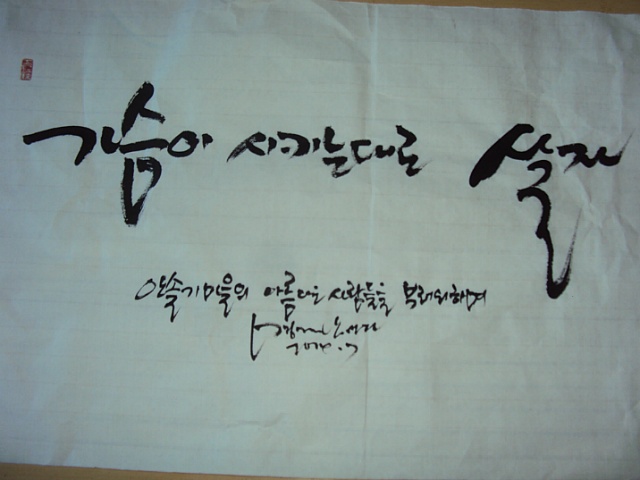 가슴이 시키는대로 살자
안솔기마을의 아름다운 사람들을 부러워하며